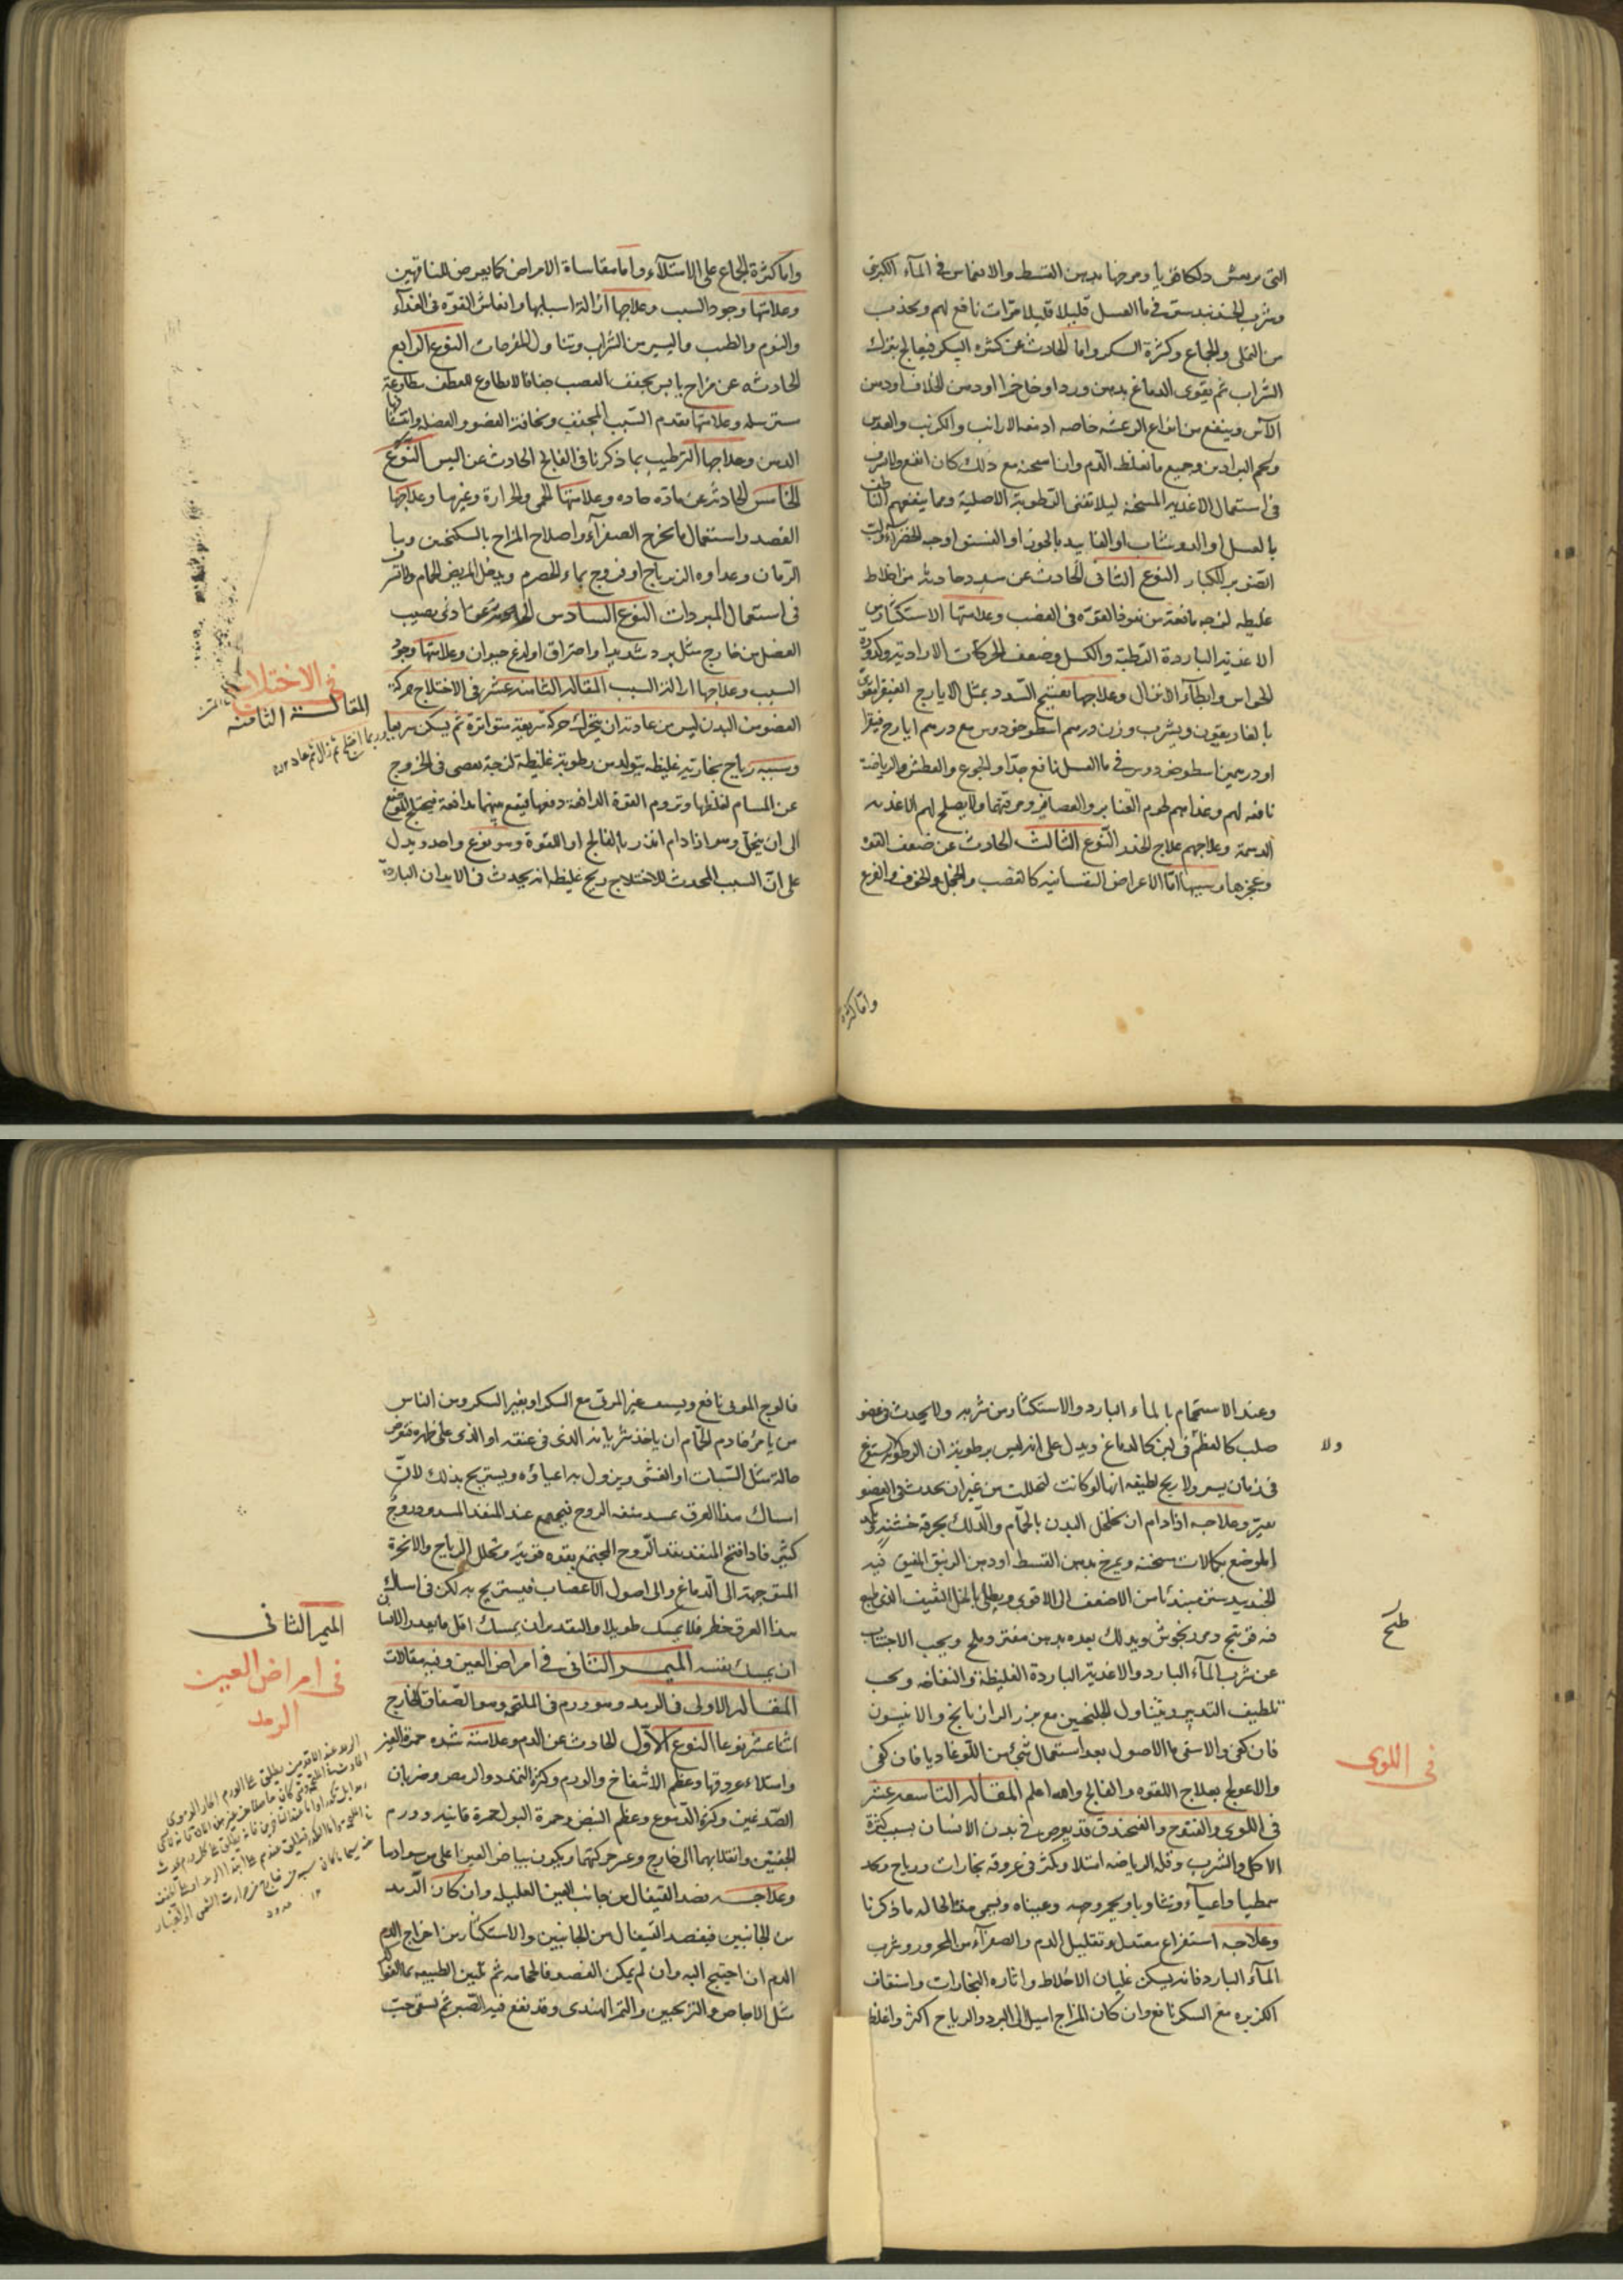 التى ترتعش دلكا قويا ومرخها بدهن القسط والانغماس فى المآء الكبريتى
وشرب الجندبيدستر فى ماء العسل قليلا قليلا مرّات نافع لهم ويحذّر
من التملى والجماع وكثرة السكر واما الحادث عن كثرة السكر فيعالج بترك
الشراب ثم يقوى الدماغ بدهن ورد او خل خمر او دهن الخلاف او دهن
الآس وينفع من انواع الرعشه خاصه ادمغة الارانب والكرنب والعدس
وجميع ما يغلظ الدم وان اسخنه مع ذلك كان انفع ولا يسرف
فى استعمال الاغذيه المسخنه ليلا تفنى الرطوبة الاصلية ومما ينفعهم الناطف
بالعسل او الدوشاب او الفانيد بالجوز او الفستق او حبه الخضرآء ولب
الصنوبر الكبار النوع الثانى الحادث عن سدد حادثه من اخلاط
غليظه لزجه مانعة من نفوذ القوّه فى العصب وعلامتها الاستكثار من
الاغذيه الباردة الرطبة والكسل وضعف الحركات الارادية وكدورة
الحواس وابطآء الانفعال وعلاجها تفتيح السدد بمثل الايارج الفيقرا مقوى
بالغاريقون ويشرب وزن درهم اسطوخودوس مع درهم ايارج فيقرا
او درهمين اسطوخودوس فى ماء العسل نافع جدّا والجوع والعطش والرياضة
نافعه لهم وغذاهم لحوم القنابر والعصافير ومرقتها ولا يصلح لهم الاغذيه
الدسمة وعلاجهم علاج الخدر النّوع الثالث الحادث عن ضعف القوة
وعجزها وسببها امّا الاعراض النفسانيه كالغضب والخجل والخوف والفزع
وامّا كثرة
وامّا كثرة الجماع على الامتلآء واما مقاساة الامراض كما يعرض للناقهين
وعلامتها وجود السبب وعلاجها ازالة اسبابها وانعاش القوّه فى الغذآء
والنوم والطيب واليسير من الشراب وتناول المفرحات النوع الرابع
الحادثه عن مزاج يابس يجفف العصب جفافا لا يطاوع للعطف مطاوعة
مسترسله وعلامتها تقدم السّبب المجفف ونحافة العضو والعضل وانتفاع
الدهن وعلاجها الترطيب بما ذكرنا فى الفالج الحادث عن اليبس النّوع
الخامس الحادثه عن مادّه حاده وعلامتها الحمى والحرارة وغيرها وعلاجها
الفصد واستعمال ما يخرج الصفرآء واصلاح المزاج بالسكنجبين وبماء
الرمان وغذاوه الزيرباج او فروج بماء الحصرم ويدخل المريض الحمام ولا تسرف
فى استعمال المبردات النوع السادس الحادثه عن اذى يصيب
العضل من خارج مثل برد شديد او احتراق او لدغ حيوان وعلامتها وجود
السبب وعلاجها ازالة السبب المقاله الثامنه عشر فى الاختلاج حركة
العضو من البدن ليس من عادته ان يتحرك حركة سريعة متواترة ثم يسكن سريعا
وربما اختلج ثم زال ثم عاد
وسببه رياح بخارية غليظه يتولد من رطوبة غليظة لزجة تعصى فى الخروج
عن المسام لغلظها وتروم القوة الدافعة دفعها فيقع بينهما مدافعة فيختلج الموضع
الى ان يتحلّل وهو اذا دام انذر بالفالج او اللقوة وهو نوع واحد ويدل
على انّ السبب المحدث للاختلاج ريح غليظه انه يحدث فى الابدان الباردة
فى الاختلاج
المقالة الثامنه
وعند الاستحمام بالماء البارد والاستكثار من شربه ولا يحدث فى عضو
صلب كالعظم ولا فى لين كالدماغ ويدل على انه ليس برطوبة ان الرطوبه لا يستفرغ
فى زمان يسير ولا ريح لطيفه انها لو كانت لتحللت من غير ان يحدث فى العضو
تغيّر وعلاجه اذا دام ان يخلخل البدن بالحمّام والدّلك بخرقه خشنه وتكمد
الموضع بكمادات مسخنه ويمرخ بدهن القسط او دهن الزنبق المفتق فيه
الجندبيدستر مبتدئا من الاضعف الى الاقوى ويطلى بالخل الثقيف الذى طبخ
فيه فوتنج ومرزنجوش ويدلك بعده بدهن مفتر وملح ويجب الاجتناب
عن شرب المآء البارد والاغذية الباردة الغليظة والنفاخه ويجب
تلطيف التدبير ويتناول الجلنجبين مع بزر الرازيانج والانيسون
فان كفى والا سقى ماء الاصول بعد استعمال شئ من اللوغاديا فان كفى
والا عولج بعلاج اللقوه والفالج والله اعلم المقاله التاسعه عشر
فى اللوى قد يعرض فى بدن الانسان بسبب كثرة
الاكل والشرب وقلة الرياضه امتلاء وكثر فى عروقه بخارات ورياح
تمطيا واعيآء وتثاوبا ويحمر وجهه وعيناه ويسمى هذه الحاله ما ذكرنا
وعلاجه استفراغ معتدل وتقليل الدم والصفرآء من المحرور وشرب
المآء البارد فانه يسكن غليان الاخلاط واثاره البخارات واستفاف
الكزبره مع السكر نافع وان كان المزاج اميل الى البرد والرياح اكثر واغلظ
ولا
طبخ
فى اللوى
فالوج المربى نافع ويستف غير المربى مع السكر او بغير السكر ومن الناس
من يامر خادم الحمّام ان ياخذ شريانه الذى فى عنقه او الذى على ظهره فتعرض
حالة مثل السّبات او الغشى ويزول به اعياؤه ويستريح بذلك لانّ
امساك هذا العرق يسد منفذ الروح فيجتمع عند المنفذ المسدود روح
كثير فاذا فتح المنفذ نفذ الرّوح المجتمع بقوه قوية وتحلل الرياح والابخرة
المتوجهة الى الدماغ والى اصول الاعصاب فيستريح به لكن فى امساك
هذا العرق خطر فلا يمسك طويلا والتقدير ان يمسك اقل ما يقدر الانسان
ان يمسك نفسه الميمر الثانى فى امراض العين وفيه مقالات
المقاله الاولى فى الرمد وهو ورم فى الملتحم وهو الصّفاق الخارج
اثنا عشر نوعا النوع الاوّل الحادث عن الدم وعلامته شده حمرة العين
وامتلاء عروقها وعظم الانتفاخ والورم وكثرة التمدد والرمص وضربان
الصّدغين وكثرة الدّموع وعظم النبض وحمرة البول لحمرة قانيه وورم
الجفنين وانقلابهما الى خارج وعسر حركتهما ويكون بياض العين اعلى من سوادها
وعلاجه فصد القيفال من جانب العين العليله وان كان الرمد
من الجانبين فيفصد القيفال من الجانبين والاستكثار من اخراج الدم
الدم ان احتيج اليه وان لم يمكن الفصد فالحجامه ثم تليين الطبيعه بماء الفواكه
مثل الاجاص والترنجبين والتمر الهندى وقد نقع فيه الصّبر ثم يسقى حبّ
الميمر الثانى
فى امراض العين
الرمد